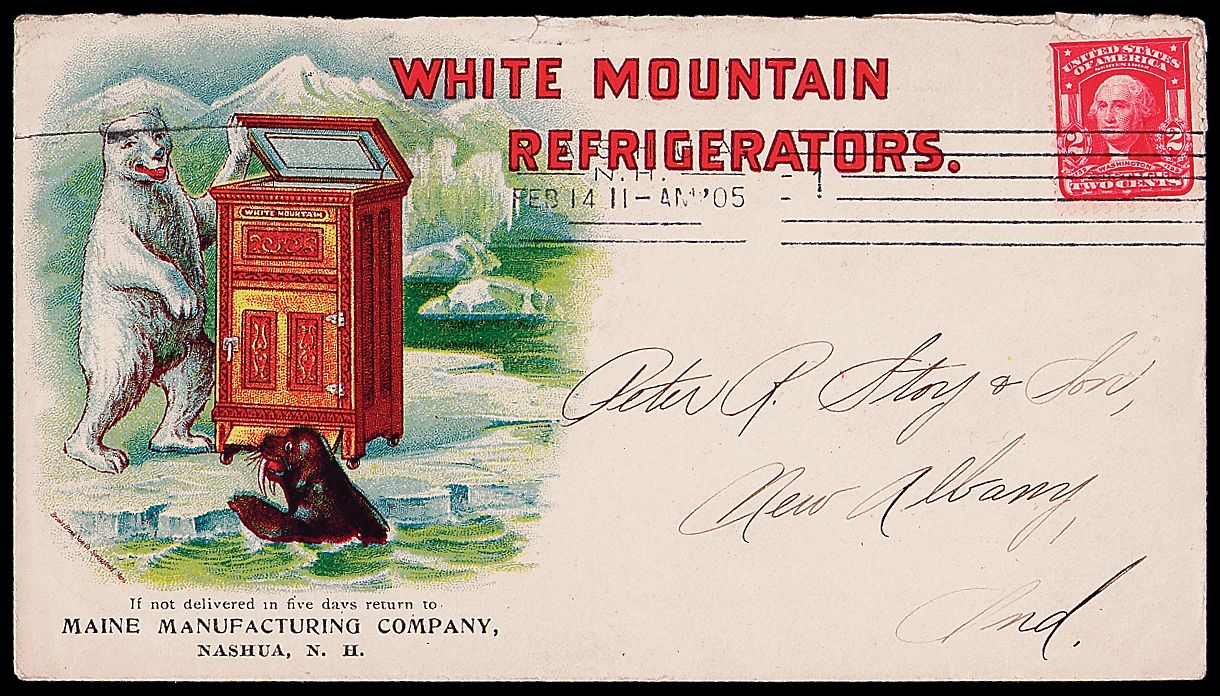 WHITE MOUNTAIN
REFRIGERATORS.
UNITED STATES
OF AMERICA
SERIES 1902
2 2
WASHINGTON
TWO CENTS
N.H. - 1
FEB 14 11-AM '05 - !
WHITE MOUNTAIN
Peter R. Stoy & Son,
New Albany,
Ind.
If not delivered in five days return to
MAINE MANUFACTURING COMPANY,
NASHUA, N. H.